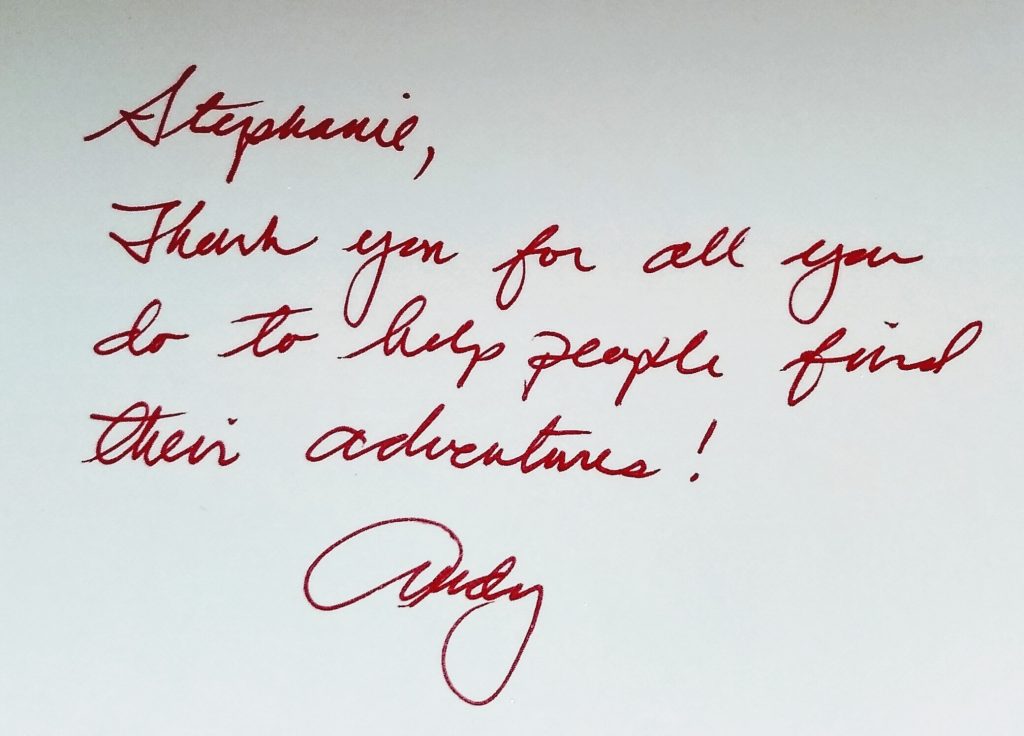 Stephanie,
Thank you for all you
do to help people find
their adventures!
Andy